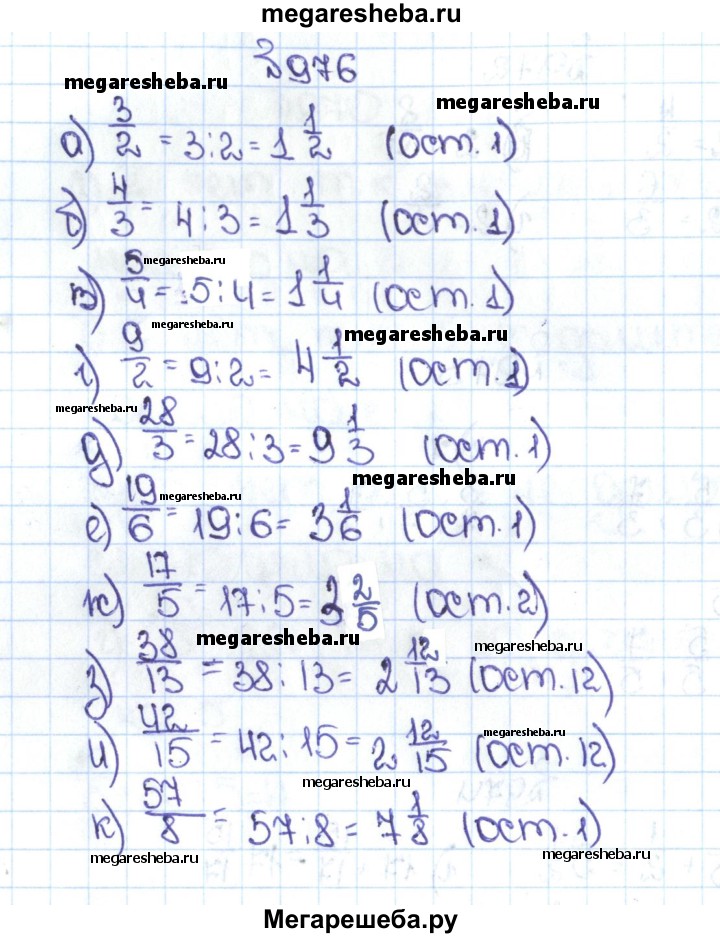 megaresheba.ru
№976
megaresheba.ru
megaresheba.ru
а) 3/2 = 3:2 = 1 1/2 (ост. 1)
б) 4/3 = 4:3 = 1 1/3 (ост. 1)
megaresheba.ru
в) 5/4 = :5:4 = 1 1/4 (ост. 1)
megaresheba.ru
megaresheba.ru
г) 9/2 = 9:2 = 4 1/2 (ост. 1)
megaresheba.ru
д) 28/3 = 28:3 = 9 1/3 (ост. 1)
megaresheba.ru
megaresheba.ru
е) 19/6 = 19:6 = 3 1/6 (ост. 1)
ж) 17/5 = 17:5 = 3 2/5 (ост. 2)
megaresheba.ru
megaresheba.ru
з) 38/13 = 38:13 = 2 12/13 (ост. 12)
megaresheba.ru
и) 42/15 = 42:15 = 2 12/15 (ост. 12)
megaresheba.ru
к) 57/8 = 57:8 = 7 1/8 (ост. 1)
megaresheba.ru
megaresheba.ru
Мегарешеба.ру